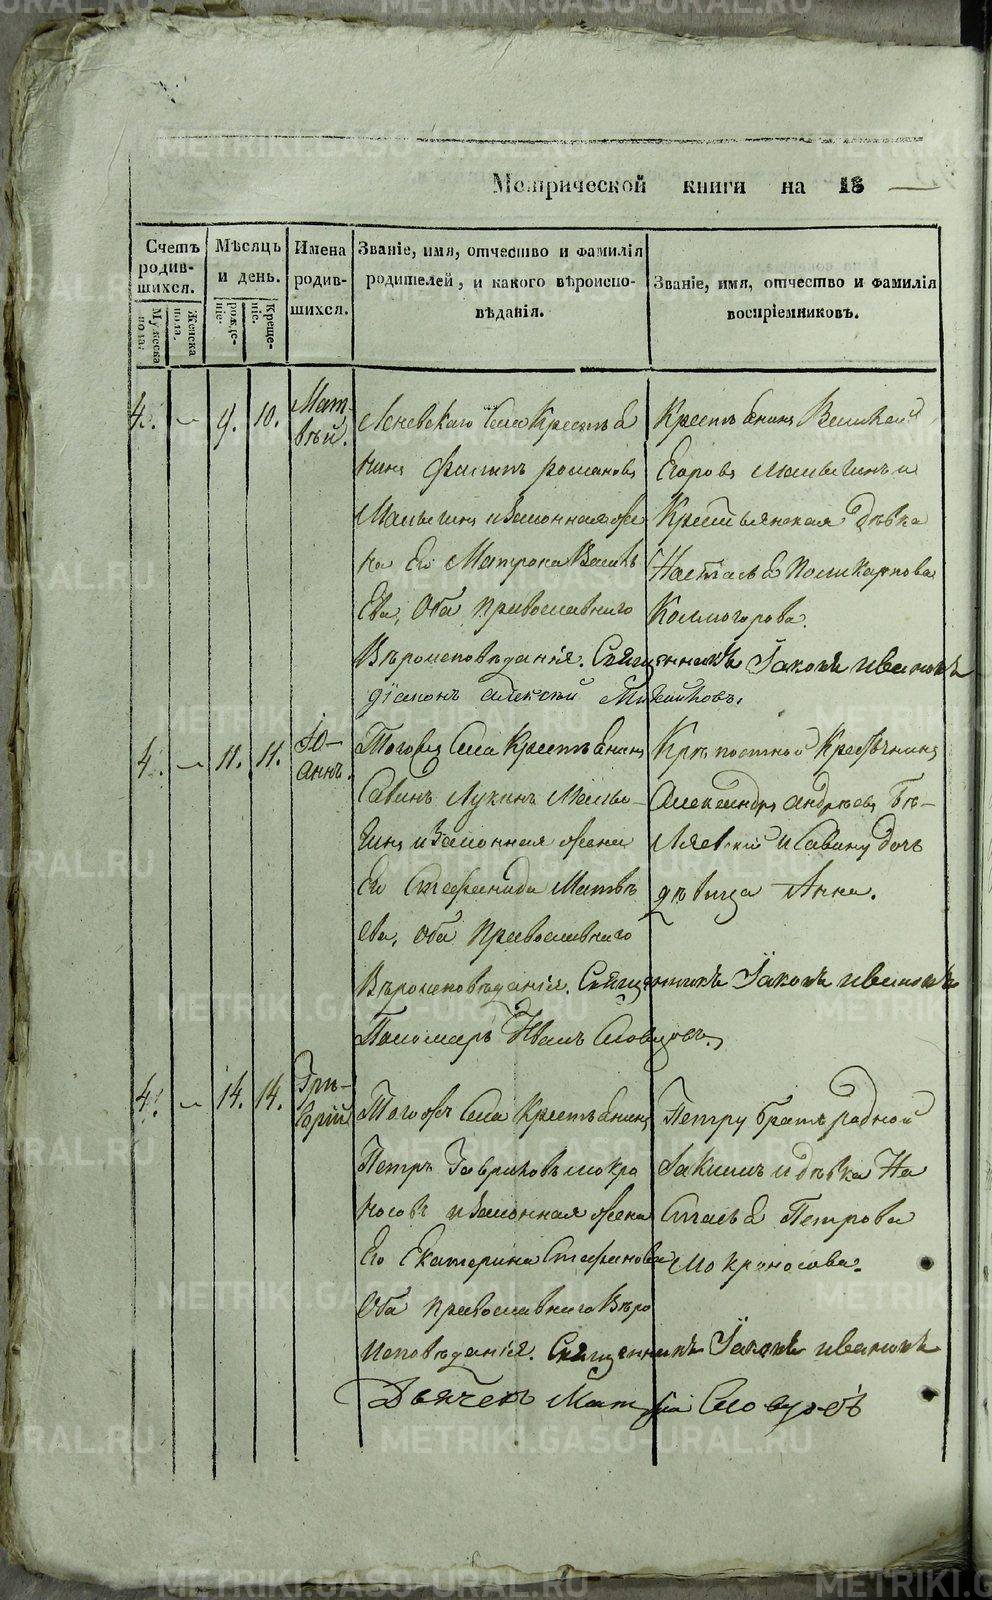 Метрической книги на 18
Счетъ родившихся.
Мужеска пола.
Женска пола.
Мѣсяцъ и день.
рожденіе.
Крещеніе.
Имена родившихся.
Званіе, имя, отчество и фамилія
родителей, и какого вѣроиспо-
вѣданія.
Званіе, имя, отчество и фамилія
воспріемниковъ.
4. — 9. 10. Мат-
вѣй.
Леневскаго Села Крестья
нинъ Филипъ романовъ
Малыгинъ и Законная же
на Его Матрона Василь
Ева, Оба Православнаго
Вѣроисповѣданія. Священникъ Іаковъ ивановъ
діаконъ алексѣй
Крестьянинъ Василей
Егоровъ Малыгинъ и
Крестьянская Дѣвка
Настасья Поликарпова
Колмогорова.
4. — 11. 11. Іо-
аннъ.
Тогожъ Села Крестьянинъ
Савинъ Лукинъ Малы-
гинъ и Законная Жена
Его Стефанида Матвѣ
ева, Оба Православнаго
Вѣроисповѣданія. Священникъ Іаковъ ивановъ
Пономарь Иванъ Словцовъ.
Крѣпостной Крестьянинъ
Александръ андрѣевъ Бѣ-
Ляевскій и Савину дочь
дѣвица Анна.
4. — 14. 14. Гри-
горій.
Тогожъ Села Крестьянинъ
Петръ Гавриловъ мокро
носовъ и Законная Жена
Его Екатерина Стефанова
Оба православнаго Вѣро
Исповѣданія. Священникъ Іаковъ ивановъ
Дьячекъ Матфій Словцовъ
Петру братъ родной
Іакимъ и дѣвка На
Стасья Петрова
Мокроносова.
METRIKI.GASO-URAL.RU